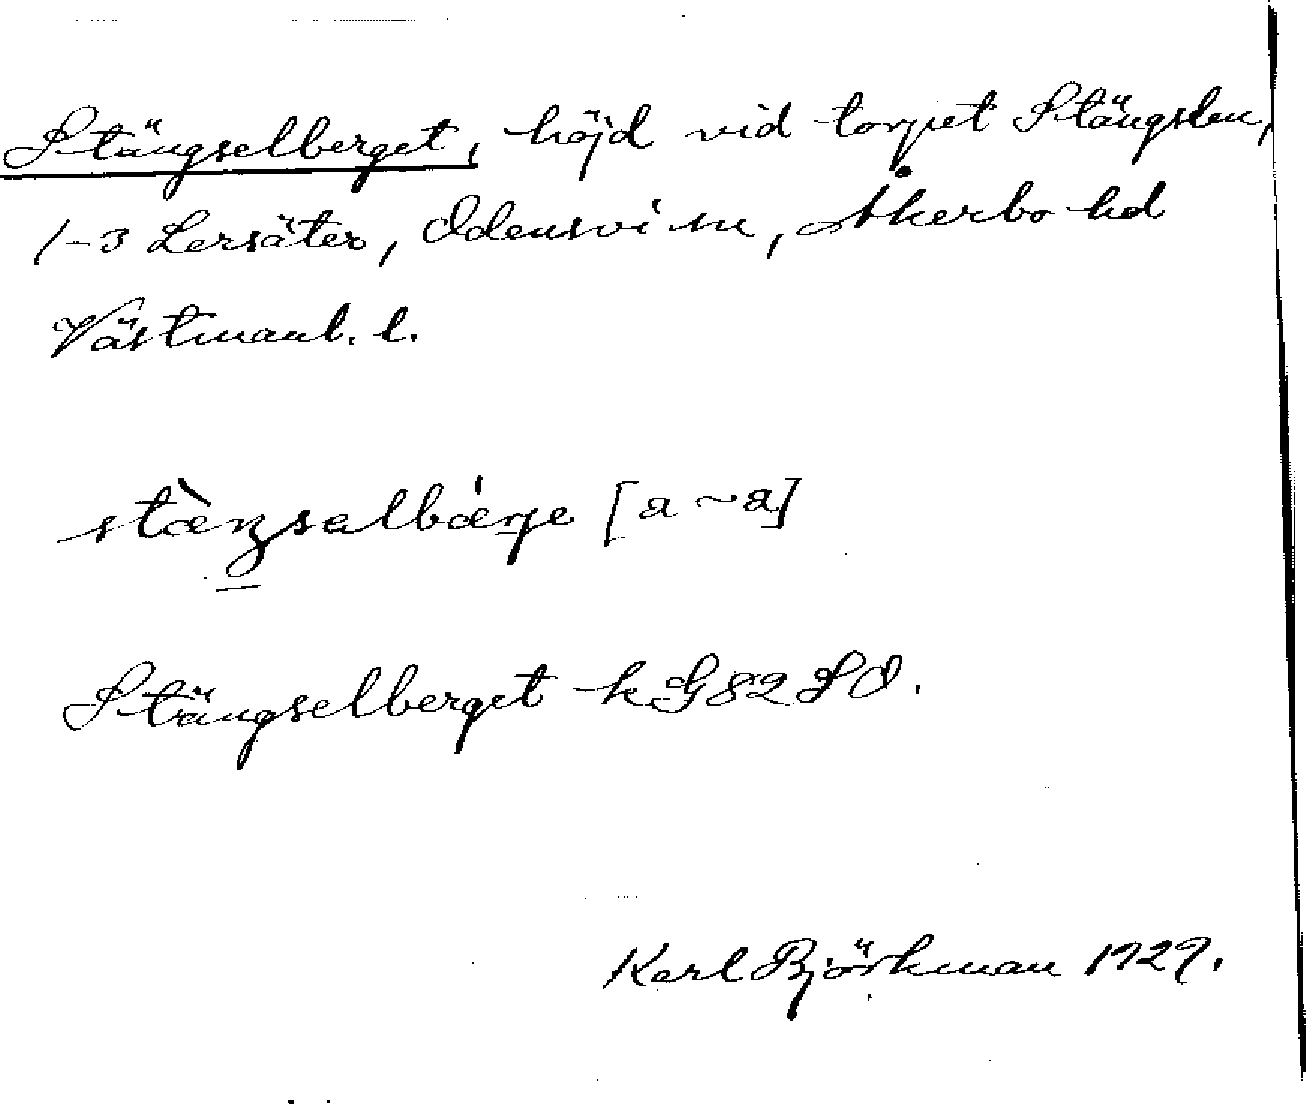 Stängselberget, höjd vid torpet Stängslen,
1-3 Lersäter, Odensvi sn, Åkerbo hd
Västmanl. l.
stæŋsəlbærje [a ~ a]
Stängselberget k G82 SO.
Karl Björkman 1929.